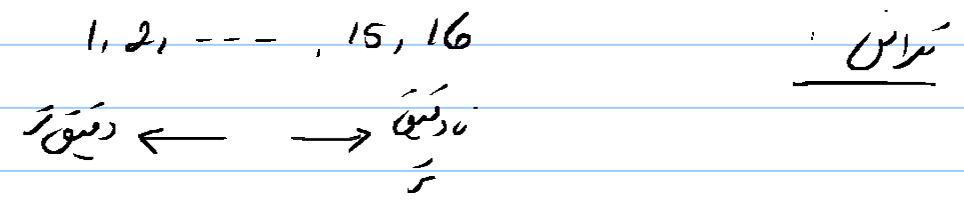 تلرانس : 1, 2, - - - , 15, 16
دقیق تر ← → نادقیق
تر